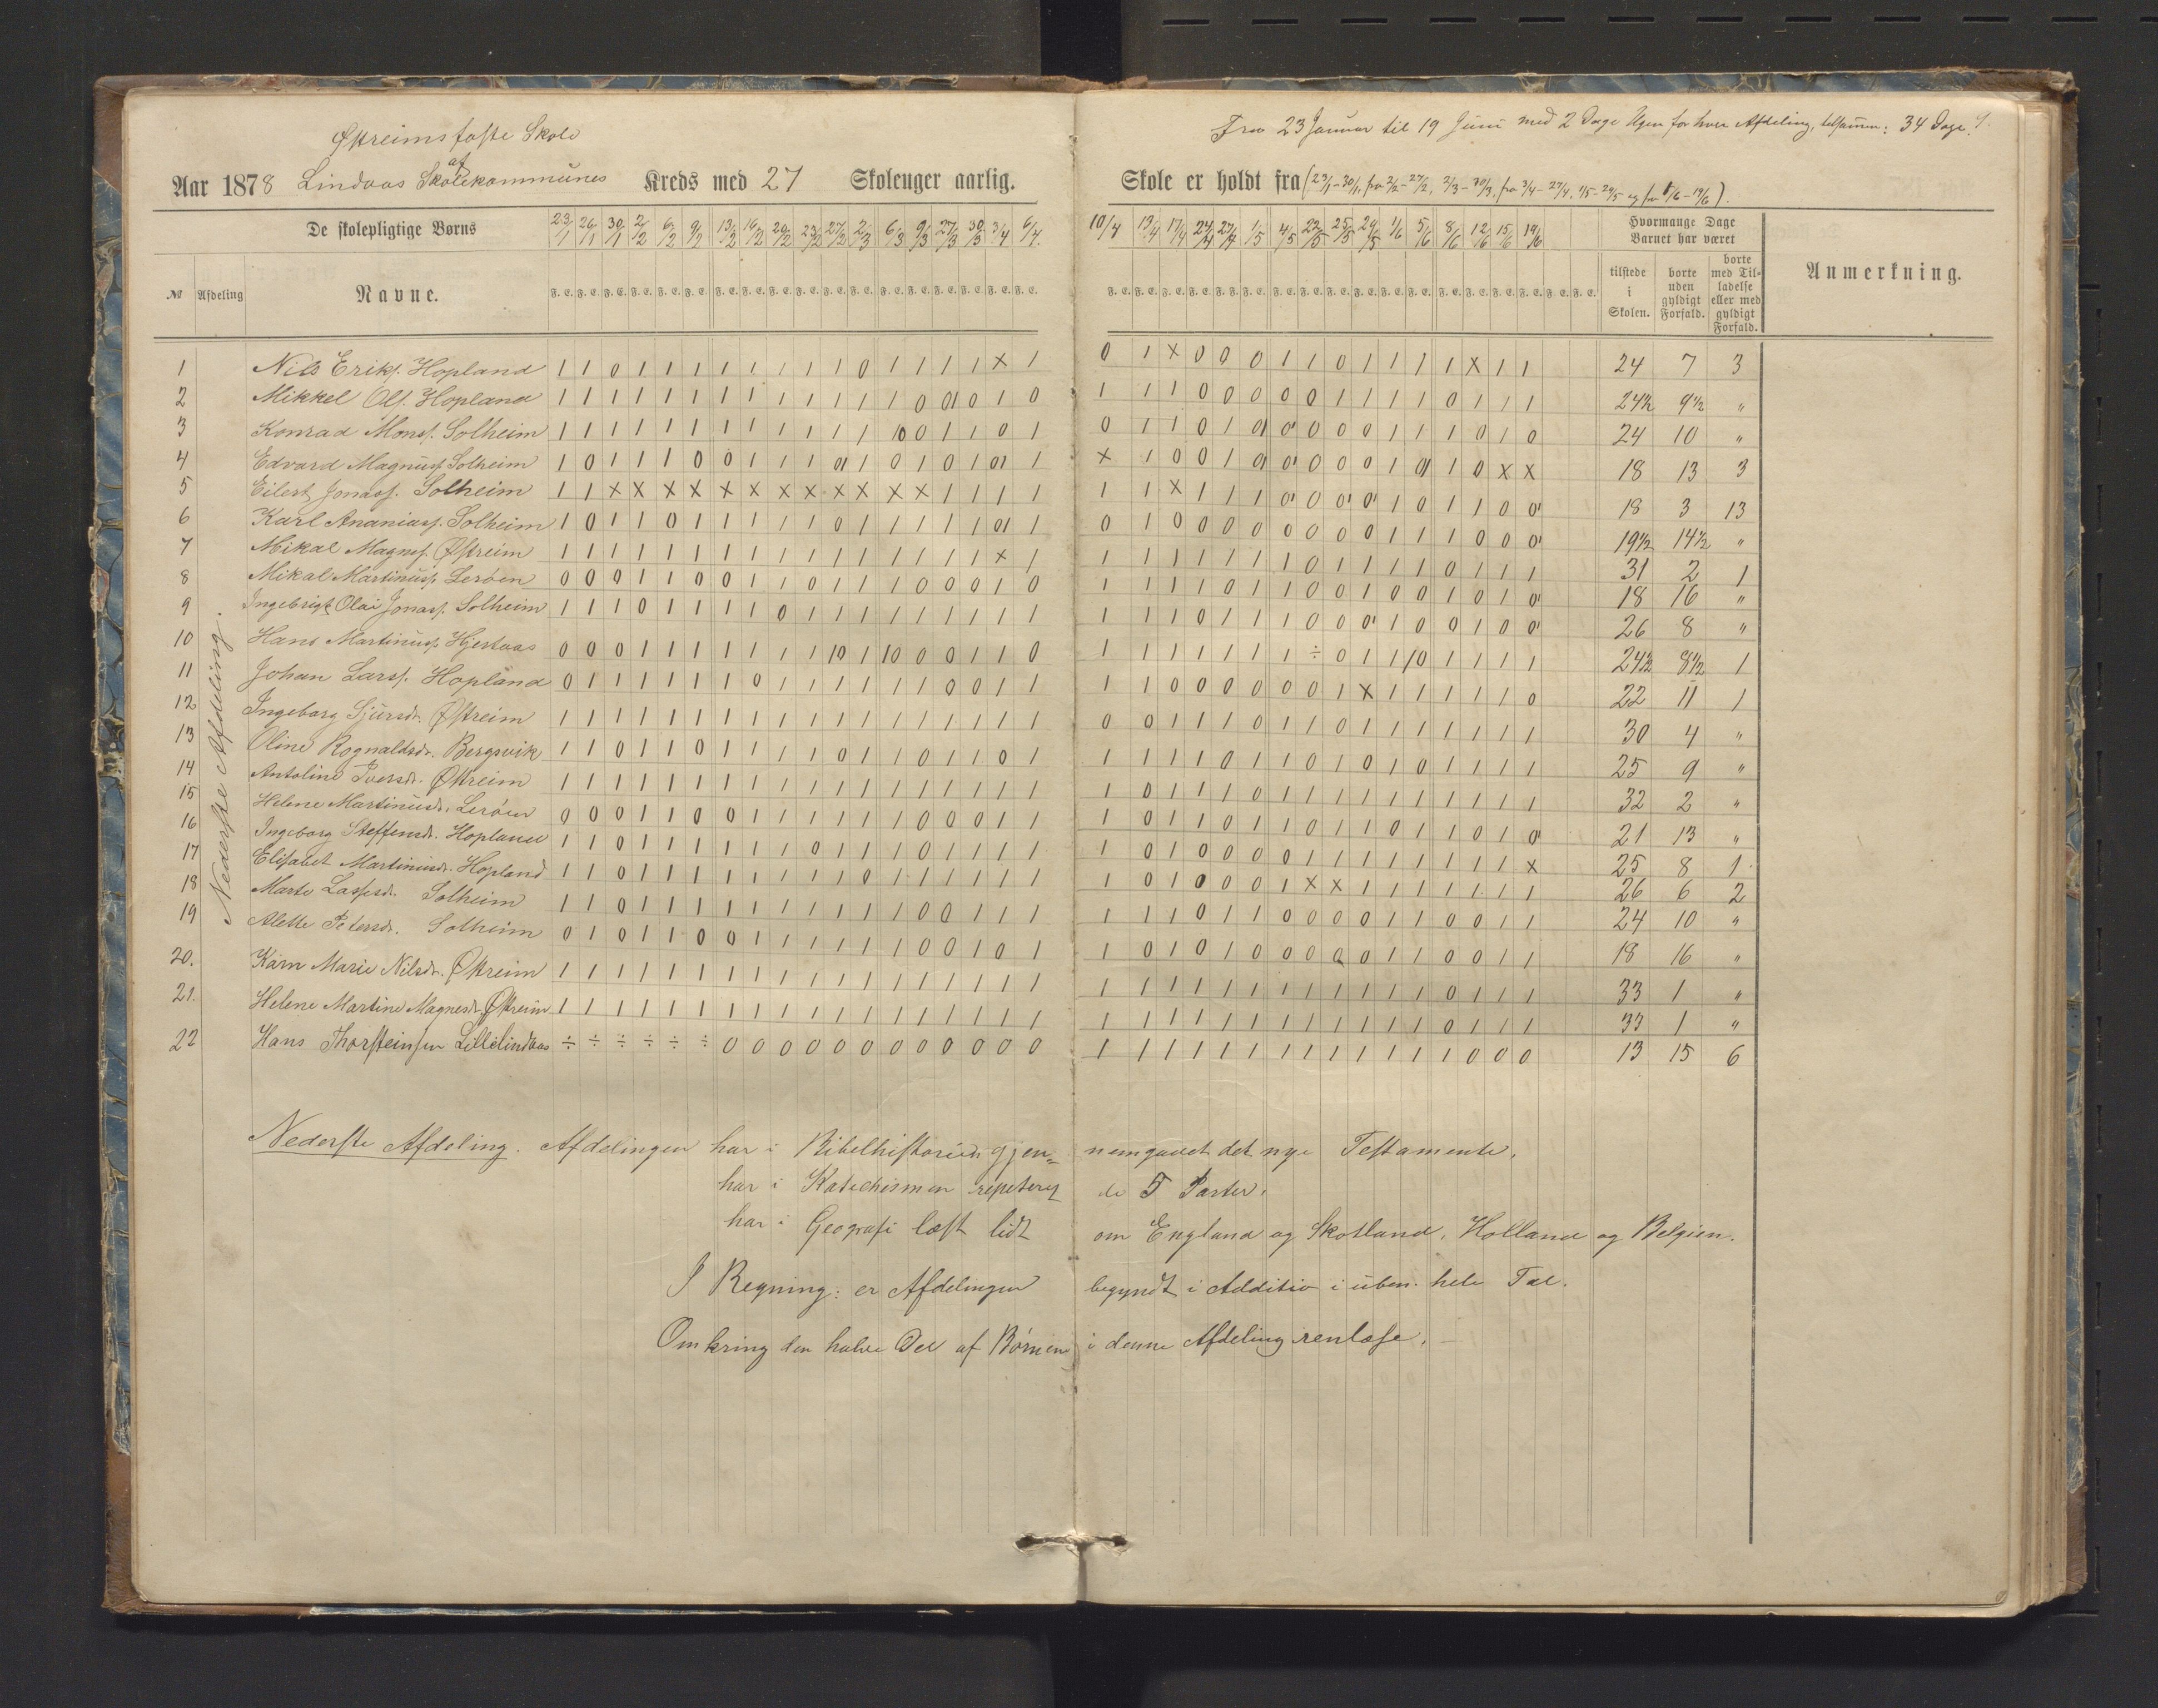 Østreims faste Skole
Fra 23 Januar til 19 Juni med 2 Dage Ugen for hver Afdeling, tilsammen: 34 Dage.
Aar 1878 Lindaas af Skolekommunes Kreds med 27 Skoleuger aarlig.
Skole er holdt fra (23/1-30/1, fra 2/2-27/2, 2/3-30/3, fra 3/4-27/4, 1/5-29/5 og fra 1/6-19/6).
De skolepligtige Børns
23/1 26/1 30/1 2/2 6/2 9/2 13/2 16/2 20/2 23/2 27/2 2/3 6/3 9/3 27/3 30/3 3/4 6/4
10/4 13/4 17/4 24/4 27/4 1/5 4/5 22/5 25/5 29/5 1/6 5/6 8/6 12/6 15/6 19/6
Hvormange Dage Barnet har været
№ Afdeling Navne.
F. E. F. E. F. E. F. E. F. E. F. E. F. E. F. E. F. E. F. E. F. E. F. E. F. E. F. E. F. E. F. E. F. E. F. E.
F. E. F. E. F. E. F. E. F. E. F. E. F. E. F. E. F. E. F. E. F. E. F. E. F. E. F. E. F. E. F. E. F. E. F. E.
tilstede i Skolen.
borte uden gyldigt Forfald.
borte med Tilladelse eller med gyldigt Forfald.
Anmerkning.
Nederste Afdeling.
1 Nils Eriks. Hopland 1 1 0 1 1 1 1 1 1 1 1 0 1 1 1 1 x 1 0 1 x 0 0 0 1 1 0 1 1 1 1 x 1 1 24 7 3
2 Mikkel Ols. Hopland 1 1 1 1 1 1 1 1 1 1 1 1 1 0 01 0 1 0 1 1 1 0 0 0 0 0 1 1 1 1 0 1 1 1 24½ 9½ "
3 Konrad Mons. Solheim 1 1 1 1 1 1 1 1 1 1 1 1 10 0 1 1 0 1 0 1 1 0 1 01 0 0 0 0 1 1 1 0 1 0 24 10 "
4 Edvard Magnuss. Solheim 1 0 1 1 1 0 0 1 1 1 01 1 0 1 0 1 01 1 x 1 0 0 1 01 0 0 0 0 1 01 1 0 x x 18 13 3
5 Eilert Jonass. Solheim 1 1 x x x x x x x x x x x x 1 1 1 1 1 1 x 1 1 1 0 0 0 0 1 0 1 1 0 0 18 3 13
6 Karl Ananiass. Solheim 1 0 1 1 0 1 1 1 1 1 0 1 1 1 1 1 01 1 0 1 0 0 0 0 0 0 0 0 1 1 1 0 0 0 19½ 14½ "
7 Mikal Magnes. Østreim 1 1 1 1 1 1 1 1 1 1 1 1 1 1 1 1 x 1 1 1 1 1 1 1 1 0 1 1 1 1 0 1 1 1 31 2 1
8 Mikal Martinuss. Lerøen 0 0 0 1 1 0 0 1 1 0 1 1 1 0 0 0 1 0 1 1 1 1 0 1 1 0 0 1 0 0 1 0 1 0 18 16 "
9 Ingebrigt Olai Jonass. Solheim 1 1 1 0 1 1 1 1 0 1 1 1 1 1 1 1 1 1 1 1 1 0 1 1 1 0 0 0 1 0 0 1 0 0 26 8 "
10 Hans Martinuss. Hjertaas 0 0 0 1 1 1 1 1 1 1 10 1 10 0 0 1 1 0 1 1 1 1 1 1 1 ÷ 0 1 1 10 1 1 1 1 24½ 8½ 1
11 Johan Larss. Hopland 0 1 1 1 1 1 1 0 1 1 1 1 1 1 0 0 1 1 1 1 0 0 0 0 0 0 1 x 1 1 1 1 1 0 22 11 1
12 Ingeborg Sjursdr. Østreim 1 1 1 1 1 1 1 1 1 1 1 1 1 1 1 1 1 1 0 0 1 1 1 0 1 1 0 1 1 1 1 1 1 1 30 4 "
13 Oline Rognaldsdr. Bergsvik 1 1 0 1 1 0 1 1 1 1 0 1 1 0 1 1 0 1 1 1 1 1 0 1 1 0 1 0 1 0 1 1 1 1 25 9 "
14 Antoline Iversdr. Østreim 1 1 1 1 1 1 1 1 1 1 1 1 1 1 1 1 1 1 1 0 1 1 1 0 1 1 1 1 1 1 1 1 1 1 32 2 "
15 Helene Martinusdr. Lerøen 0 0 0 1 1 0 0 1 1 1 1 1 1 0 0 0 1 1 1 0 1 1 0 1 1 0 1 1 0 1 1 0 1 0 21 13 "
16 Ingeborg Steffensdr. Hopland 1 1 0 1 1 1 1 1 1 0 1 1 1 0 1 1 1 1 1 0 1 0 0 0 0 1 1 1 1 1 1 1 1 x 25 8 1
17 Elisabet Martinusdr. Hopland 1 1 0 1 1 1 1 1 1 1 1 0 1 1 1 1 1 1 1 0 1 0 0 0 1 x x 1 1 1 1 1 1 1 26 6 2
18 Marte Lassesdr. Solheim 1 1 0 1 1 1 1 1 1 1 1 1 1 0 0 1 1 1 1 1 1 0 1 1 0 0 0 0 1 1 0 0 1 1 24 10 "
19 Alette Petersdr. Solheim 0 1 0 1 1 0 0 1 1 1 1 1 1 0 0 1 0 1 1 0 1 0 1 0 0 0 0 0 1 1 0 0 1 1 18 16 "
20. Karn Marie Nilsdr. Østreim 1 1 1 1 1 1 1 1 1 1 1 1 1 1 1 1 1 1 1 1 1 1 1 1 1 1 1 1 1 1 0 1 1 1 33 1 "
21. Helene Martine Magnesdr. Østreim 1 1 1 1 1 1 1 1 1 1 1 1 1 1 1 1 1 1 1 1 1 1 1 1 1 1 1 1 1 1 0 1 1 1 33 1 "
22 Hans Thorsteinsen Lillelindaas ÷ ÷ ÷ ÷ ÷ ÷ 0 0 0 0 0 0 0 0 0 0 0 0 1 1 1 1 1 1 1 1 1 1 1 1 1 0 0 0 13 15 6
Nederste Afdeling. Afdelingen har i Bibelhistorien gjennemgaaet det nye Testamente.
har i Katechismen repeteret de 5 Parter.
har i Geografi læst lidt om England og Skotland, Holland og Belgien.
I Regning: er Afdelingen begyndt i Additio i uben. hele Tal.
Omkring den halve Del af Børnene i denne Afdeling renlæse.